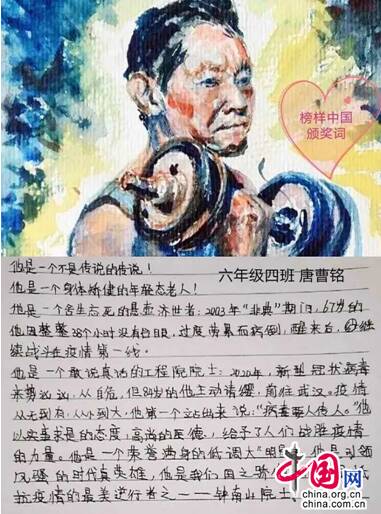 榜样中国
颁奖词
六年级四班 唐曹铭
他是一个不是传说的传说！
他是一个身体矫健的年轻态老人！
他是一个舍生忘死的悬壶济世者：2003年"非典"期间，67岁的
他因整整38个小时没有合眼，过度劳累而病倒，醒来后，继
续战斗在疫情第一线。
他是一个敢说真话的工程院院士：2020年，新型冠状病毒
来势汹汹，人自危，但84岁的他主动请缨，前往武汉。疫情
从无到有，从小到大，他第一个站出来说："病毒人传人。"他
以实事求是的态度，高尚的医德，给予了人们战胜疫情
的力量。他是一个荣誉满身的低调大"明星"，他是引领
风骚的时代真英雄，他是我们国之
抗疫情的最美逆行者之一——钟南山院士
中国网
china.org.cn
www.china.org.cn